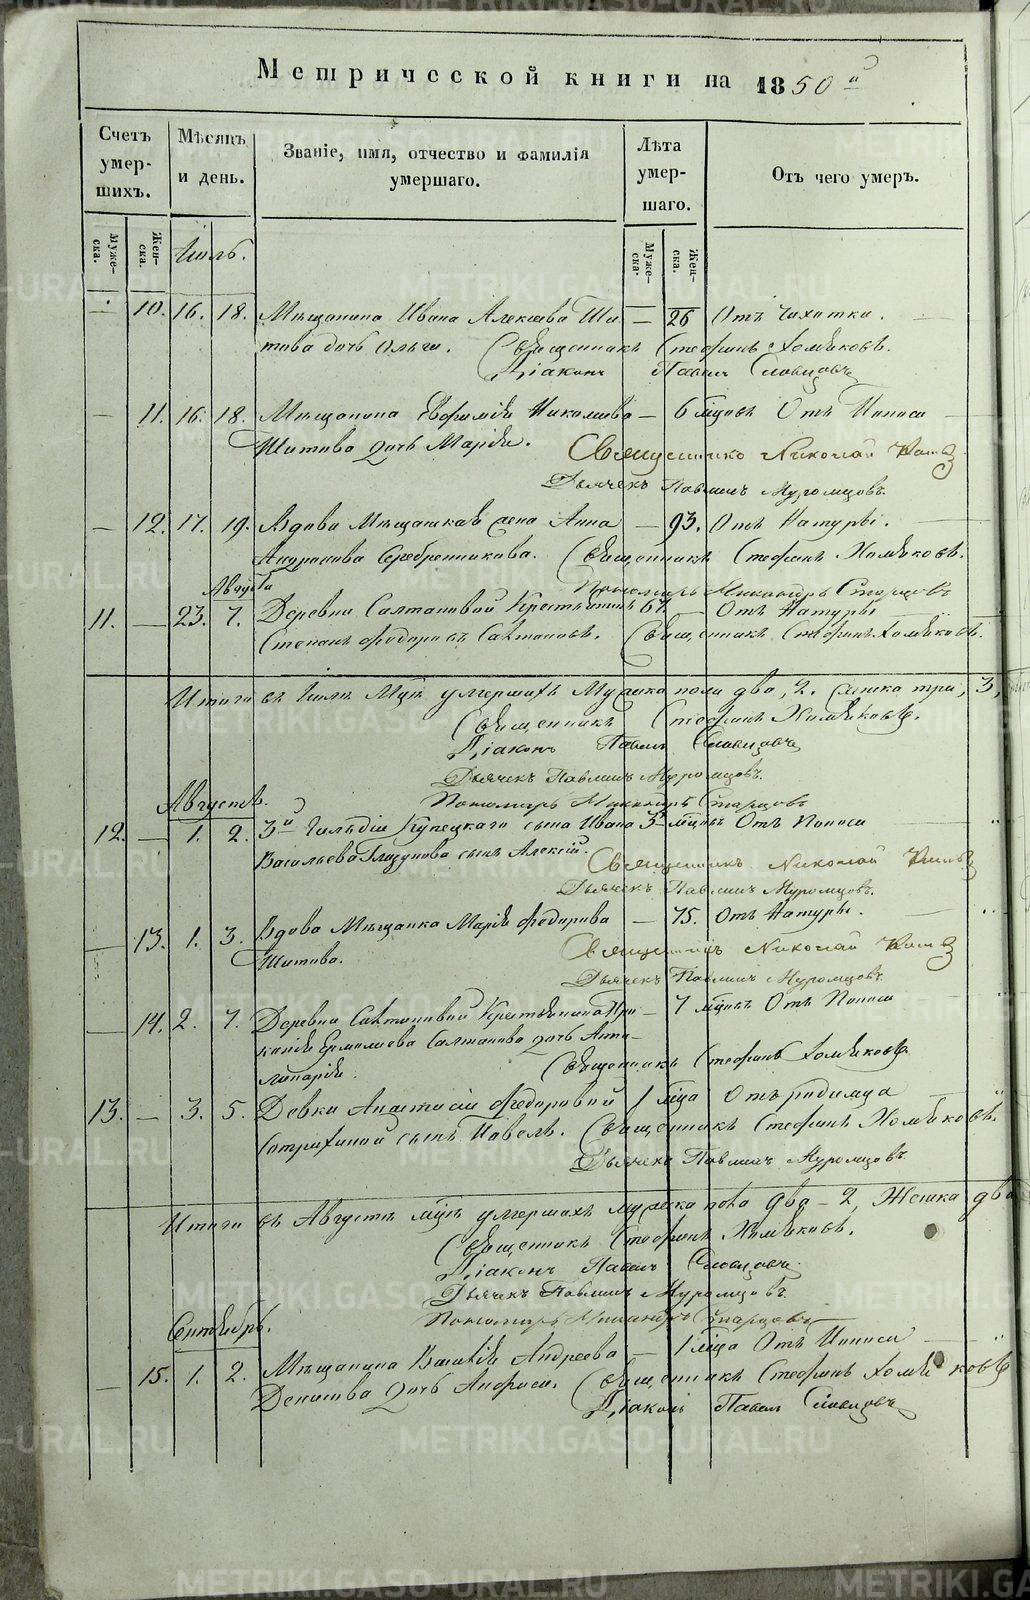 Метрической книги на 1850й
Счетъ умер- шихъ.
Мѣсяцъ и день.
Званіе, имя, отчество и фамилія умершаго.
Лѣта умер- шаго.
Отъ чего умеръ.
Муже- ска.
Жен- ска.
Іюль.
Муже- ска.
Жен- ска.
— 10. 16. 18. Мѣщанина Ивана Алексѣева Ши — 26 Отъ Чахотки.
това дочь Ольга. Священникъ Стефанъ Хомяковъ.
Діаконъ Павелъ Словцовъ
— 11. 16. 18. Мѣщанина Евфимія Николаева — 6 мцовъ Отъ Поноса
Шитова дочь Марія. Священникъ Николай
Дьячекъ Павлинъ Муромцовъ.
— 12. 17. 19. Вдова Мѣщанская жена Анна — 93. Отъ Натуры.
Андронова Серебренникова. Священникъ Стефанъ Хомяковъ.
Августа
Пономарь Никандръ Старцовъ
11. — 23. 7. Деревни Салтановой Крестьянинъ 67. — Отъ Натуры
Степанъ Федоровъ Салтановъ. Священникъ Стефанъ Хомяковъ.
Итого въ Іюлѣ Мцѣ умершихъ Мужска пола два, 2. Женска три, 3,
Священникъ Стефанъ Хомяковъ.
Діаконъ Павелъ Словцовъ
Дьячекъ Павлинъ Муромцовъ.
Пономарь Никандръ Старцовъ
Августъ.
12. — 1. 2. 3й Гильдіи Купецкаго сына Ивана 3 мцовъ Отъ Поноса
Васильева Глазунова сынъ Алексій. Священникъ Николай
Дьячекъ Павлинъ Муромцовъ.
— 13. 1. 3. Вдова Мѣщанка Марія Федорова — 75. Отъ Натуры.
Шитова. Священникъ Николай
Дьячекъ Павлинъ Муромцовъ.
— 14. 2. 7. Деревни Салтановой Крестьянина Про — 7 мцовъ Отъ Поноса
копія Ермолаева Салтанова дочь Апо-
линарія. Священникъ Стефанъ Хомяковъ.
13. — 3. 5. Девки Анастасіи Федоровой 1 мца Отъ родимца
сынъ Павелъ. Священникъ Стефанъ Хомяковъ.
Дьячекъ Павлинъ Муромцовъ
Итого въ Августѣ мцѣ умершихъ мужска пола два – 2, Женска два
Священникъ Стефанъ Хомяковъ.
Діаконъ Павелъ Словцовъ.
Дьячекъ Павлинъ Муромцовъ.
Пономарь Никандръ Старцовъ
Сентябрь.
— 15. 1. 2. Мѣщанина Василія Андреева — 1 мца Отъ Поноса
Денисова дочь Анфиса. Священникъ Стефанъ Хомяковъ
Діаконъ Павелъ Словцовъ
METRIKI.GASO-URAL.RU